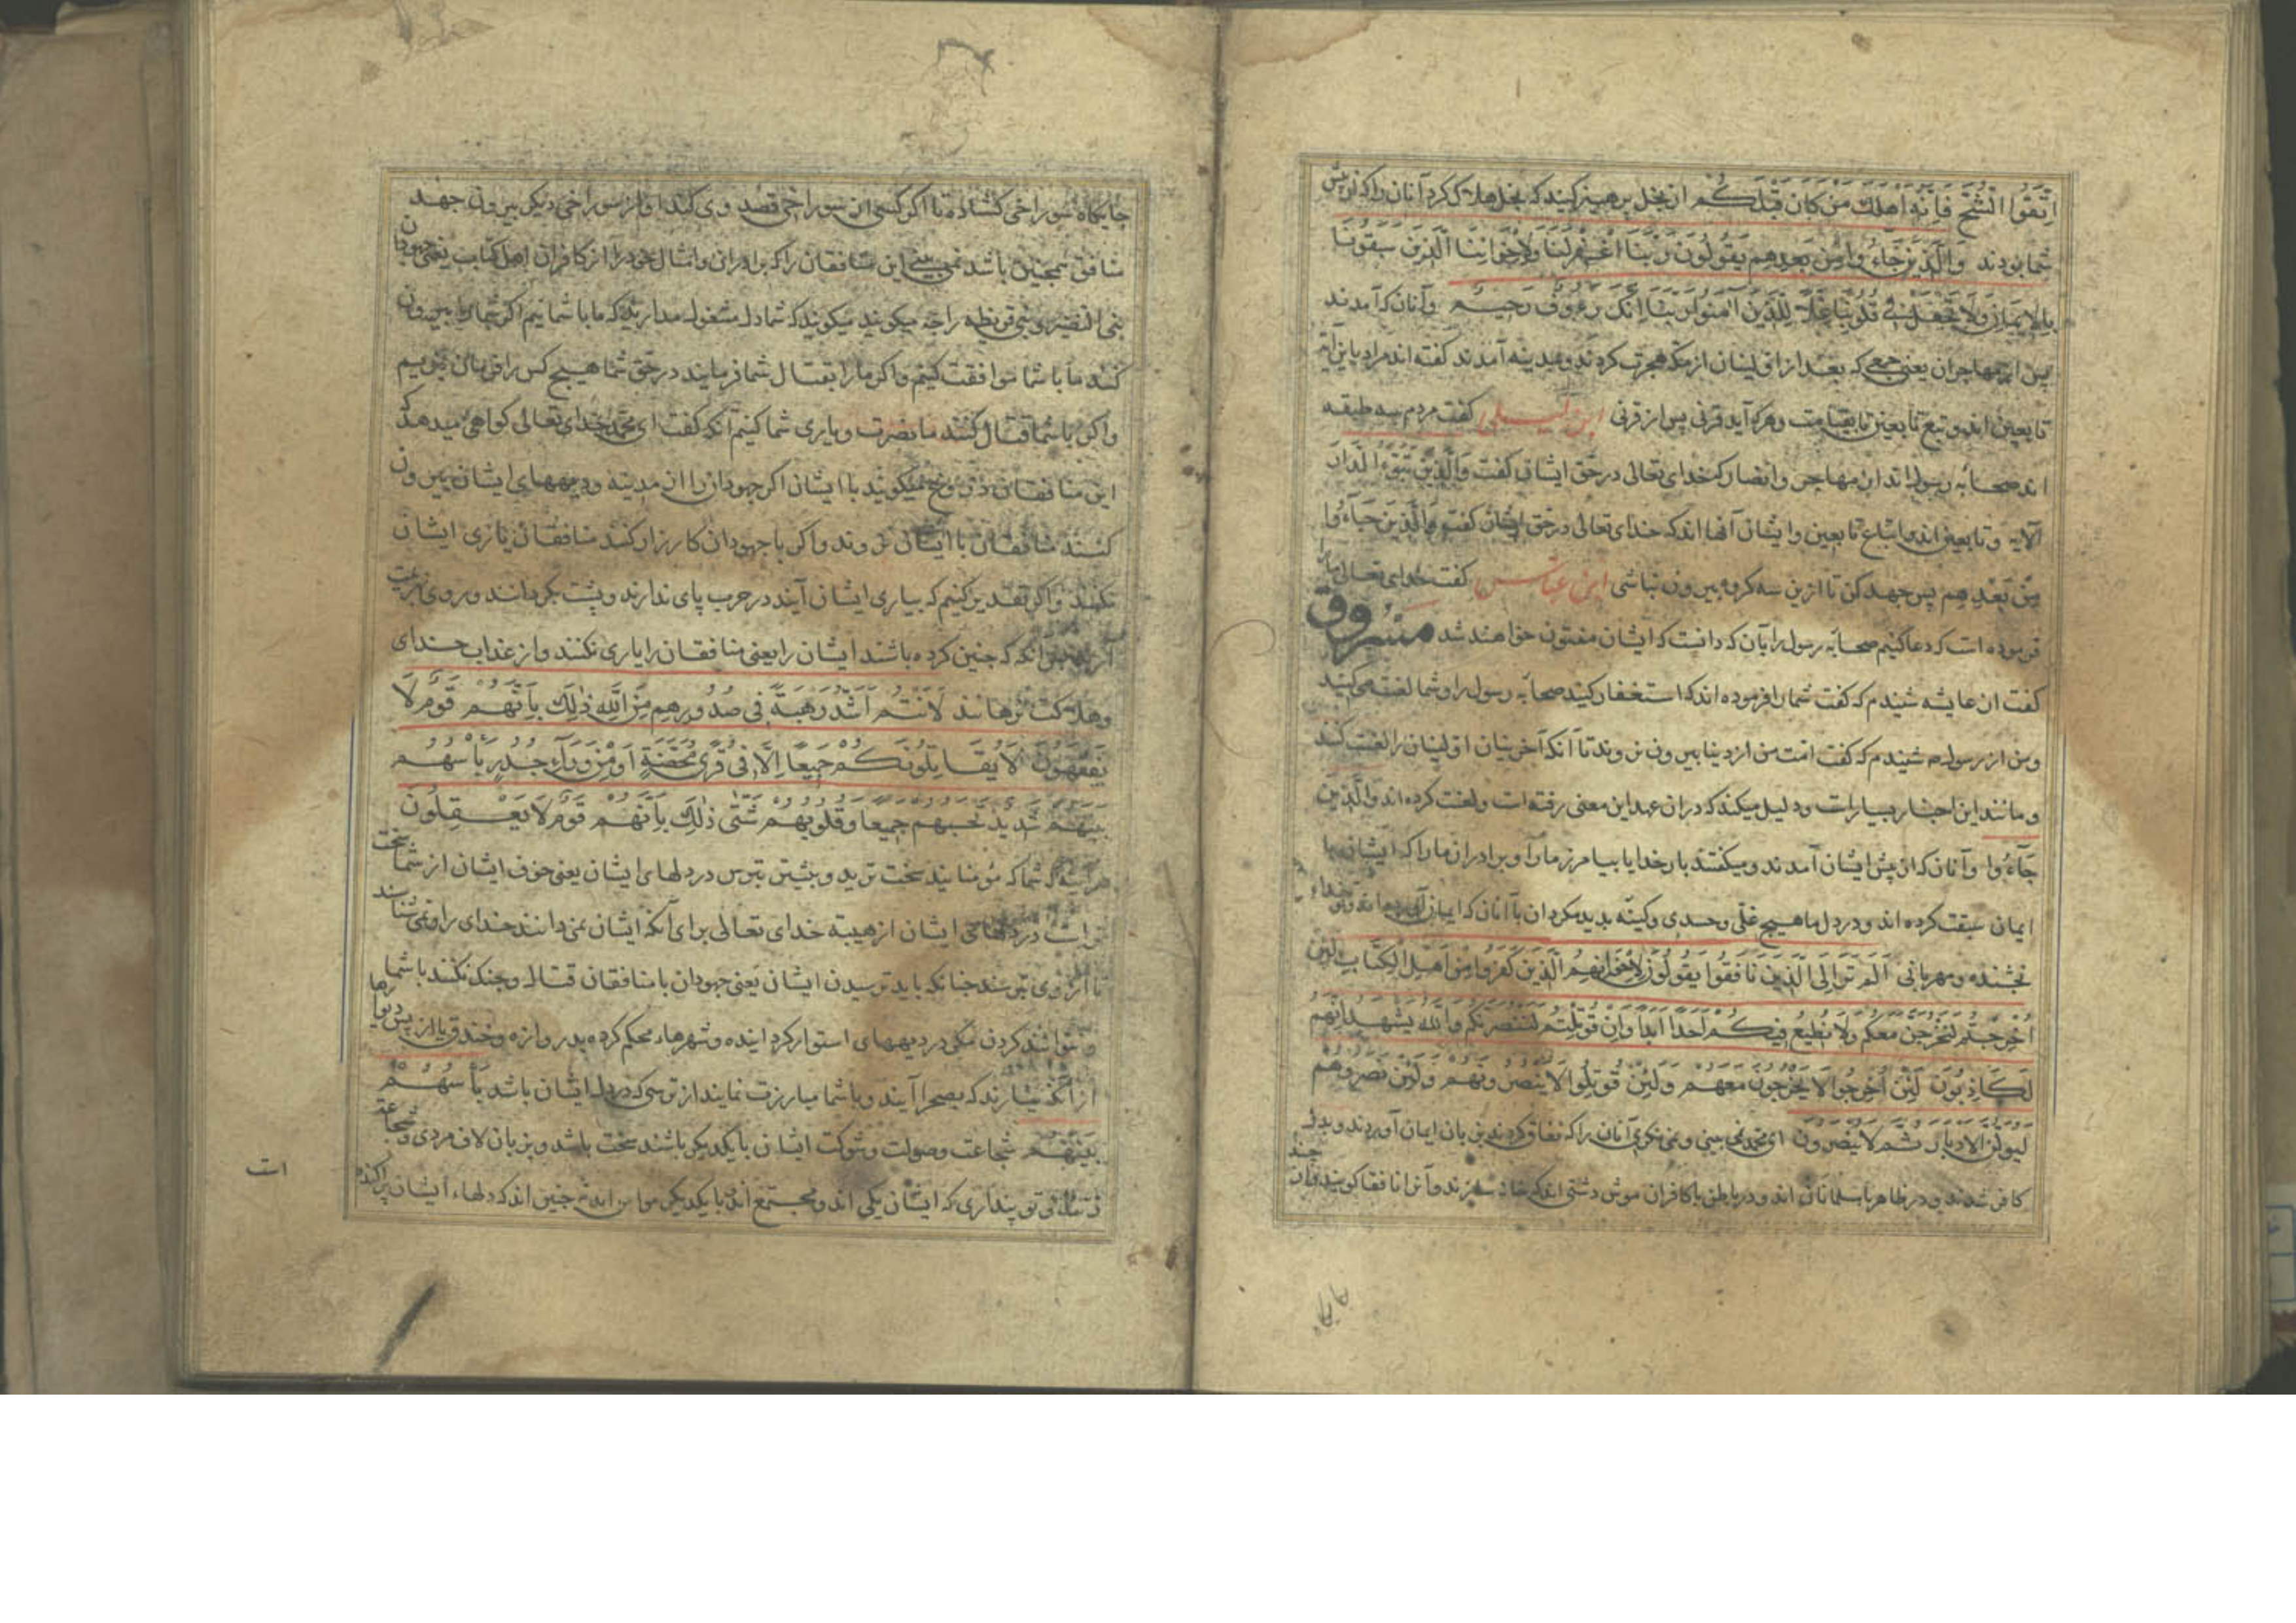 اتقوا الشح فانه اهلك من كان قبلكم از بخل پرهيز كنيد كه بخل هلاك كرد آنان را كه از پيش
شما بودند والذين جاءوا من بعدهم يقولون ربنا اغفر لنا ولاخواننا الذين سبقونا
بالايمان ولا تجعل فى قلوبنا غلا للذين امنوا ربنا انك رءوف رحيم وآنان كه آمدند
پس از مهاجران يعنى جمعى كه بعد از اوليشان از مكه هجرت كردند و بمدينه آمدند گفته اند مراد باين آيه
تابعين اند و تبع تابعين تا بقيامت و هركه آيد قرنى پس از قرنى ابن ابى ليلى گفت مردم سه طبقه
اند صحابه رسول اند از مهاجر و انصار كه خداى تعالى در حق ايشان گفت والذين تبوءا الدار
الايه و تابعين اند و اتباع تابعين و ايشان آنها اند كه خداى تعالى در حق ايشان گفت والذين جاءوا
من بعدهم پس جهد كن تا ازين سه گروه بيرون نباشى ابن عباس گفت خداى تعالى ما را
فرموده است كه دعا كنيم صحابه رسول را بآن كه دانست كه ايشان مفتون خواهند شد مسروق
گفت از عايشه شنيدم كه گفت شما را فرموده اند كه استغفار كنيد صحابه رسول را و شما لعنت مى كنيد
و من از رسول ص شنيدم كه گفت امت من از دنيا بيرون نروند تا آنكه آخرينان اولينان را لعنت كنند
و مانند اين اخبار بسيارست و دليل ميكند كه در آن عهد اين معنى رفته است و لعنت كرده اند والذين
جاءوا و آنان كه از پس ايشان آمدند و ميگفتند بار خدايا بيامرز ما را و برادران ما را كه ايشان با
ايمان سبقت كرده اند و در دل ما هيچ غلى و حسدى و كينه پديد مكردان باآنان كه ايمان
بخشنده و مهربانى الم تر الى الذين نافقوا يقولون لاخوانهم الذين كفروا من اهل الكتاب لئن
اخرجتم لنخرجن معكم ولا نطيع فيكم احدا ابدا وان قوتلتم لننصرنكم والله يشهد انهم
لكاذبون لئن اخرجوا لا يخرجون معهم ولئن قوتلوا لا ينصرونهم ولئن نصروهم
ليولن الادبار ثم لا ينصرون اى محمد نمى بينى و نمى نگرى آنان را كه نفاق كردند بزبان ايمان آوردند و بدل
كافر شدند و در ظاهر با مسلمانان اند و در باطن با كافران موش دشتى اند كه خانه سازند و آنرا نافقا گويند و آن را چند
جايگاه سوراخى گشاده تا اگر كسى از سوراخى قصد وى كند او از سوراخى ديگر بيرون جهد
منافق همچنين باشد نمى بينى اين منافقان را كه برادران و امثال خود را از كافران اهل كتاب يعنى جهودان
بنى النضير و بنى قريظه را چه ميگويند ميگويند كه شما دل مشغول مداريد كه ما با شماييم اگر شما را بيرون
كنند ما با شما موافقت كنيم و اگر ما را بقتال شما فرمايند در حق شما هيچ كس را فرمان نبريم
و اگر با شما قتال كنند ما نصرت و يارى شما كنيم آنگه گفت اى محمد خداى تعالى گواهى ميدهد كه
اين منافقان دروغ ميگويند با ايشان اگر جهودان را از مدينه و ديههاى ايشان بيرون
كنند منافقان با ايشان نروند و اگر با جهودان كارزار كنند منافقان يارى ايشان
نكنند و اگر تقدير كنيم كه بيارى ايشان آيند در حرب پاى ندارند و پشت بگردانند و روى بهزيمت
آرند پس آنگه كه چنين كرده باشند ايشان را يعنى منافقان را يارى نكنند و از عذاب خداى
و هلاكت نرهانند لانتم اشد رهبة فى صدورهم من الله ذلك بانهم قوم لا
يفقهون لا يقاتلونكم جميعا الا فى قرى محصنة او من وراء جدر باسهم
بينهم شديد تحسبهم جميعا وقلوبهم شتى ذلك بانهم قوم لا يعقلون
هرآينه كه شما كه مؤمنانيد سخت تريد و بيشتر بترس در دلهاى ايشان يعنى خوف ايشان از شما سخت
تر است در دلهاى ايشان از هيبة خداى تعالى براى آنكه ايشان نمى دانند خداى را و نمى شناسند
تا از وى بترسند چنانكه بايد ترسيدن ايشان يعنى جهودان با منافقان قتال و جنگ نكنند با شما
و نتوانند كردن مگر در ديههاى استوار كرده اينده و شهرها محكم كرده بدروازه و خندق يا از پس ديوارها
از آنكه نيارند كه بصحرا آيند و با شما مبارزت نمايند از ترسى كه در دل ايشان باشد باسهم
بينهم شجاعت و صولت و شوكت ايشان با يكديگر باشند سخت باشد و بزبان لاف مردى و شجاعت
زنند تو پندارى كه ايشان يكى اند و مجتمع اند با يكديگر چنين اند كه دلهاء ايشان پراكنده
است